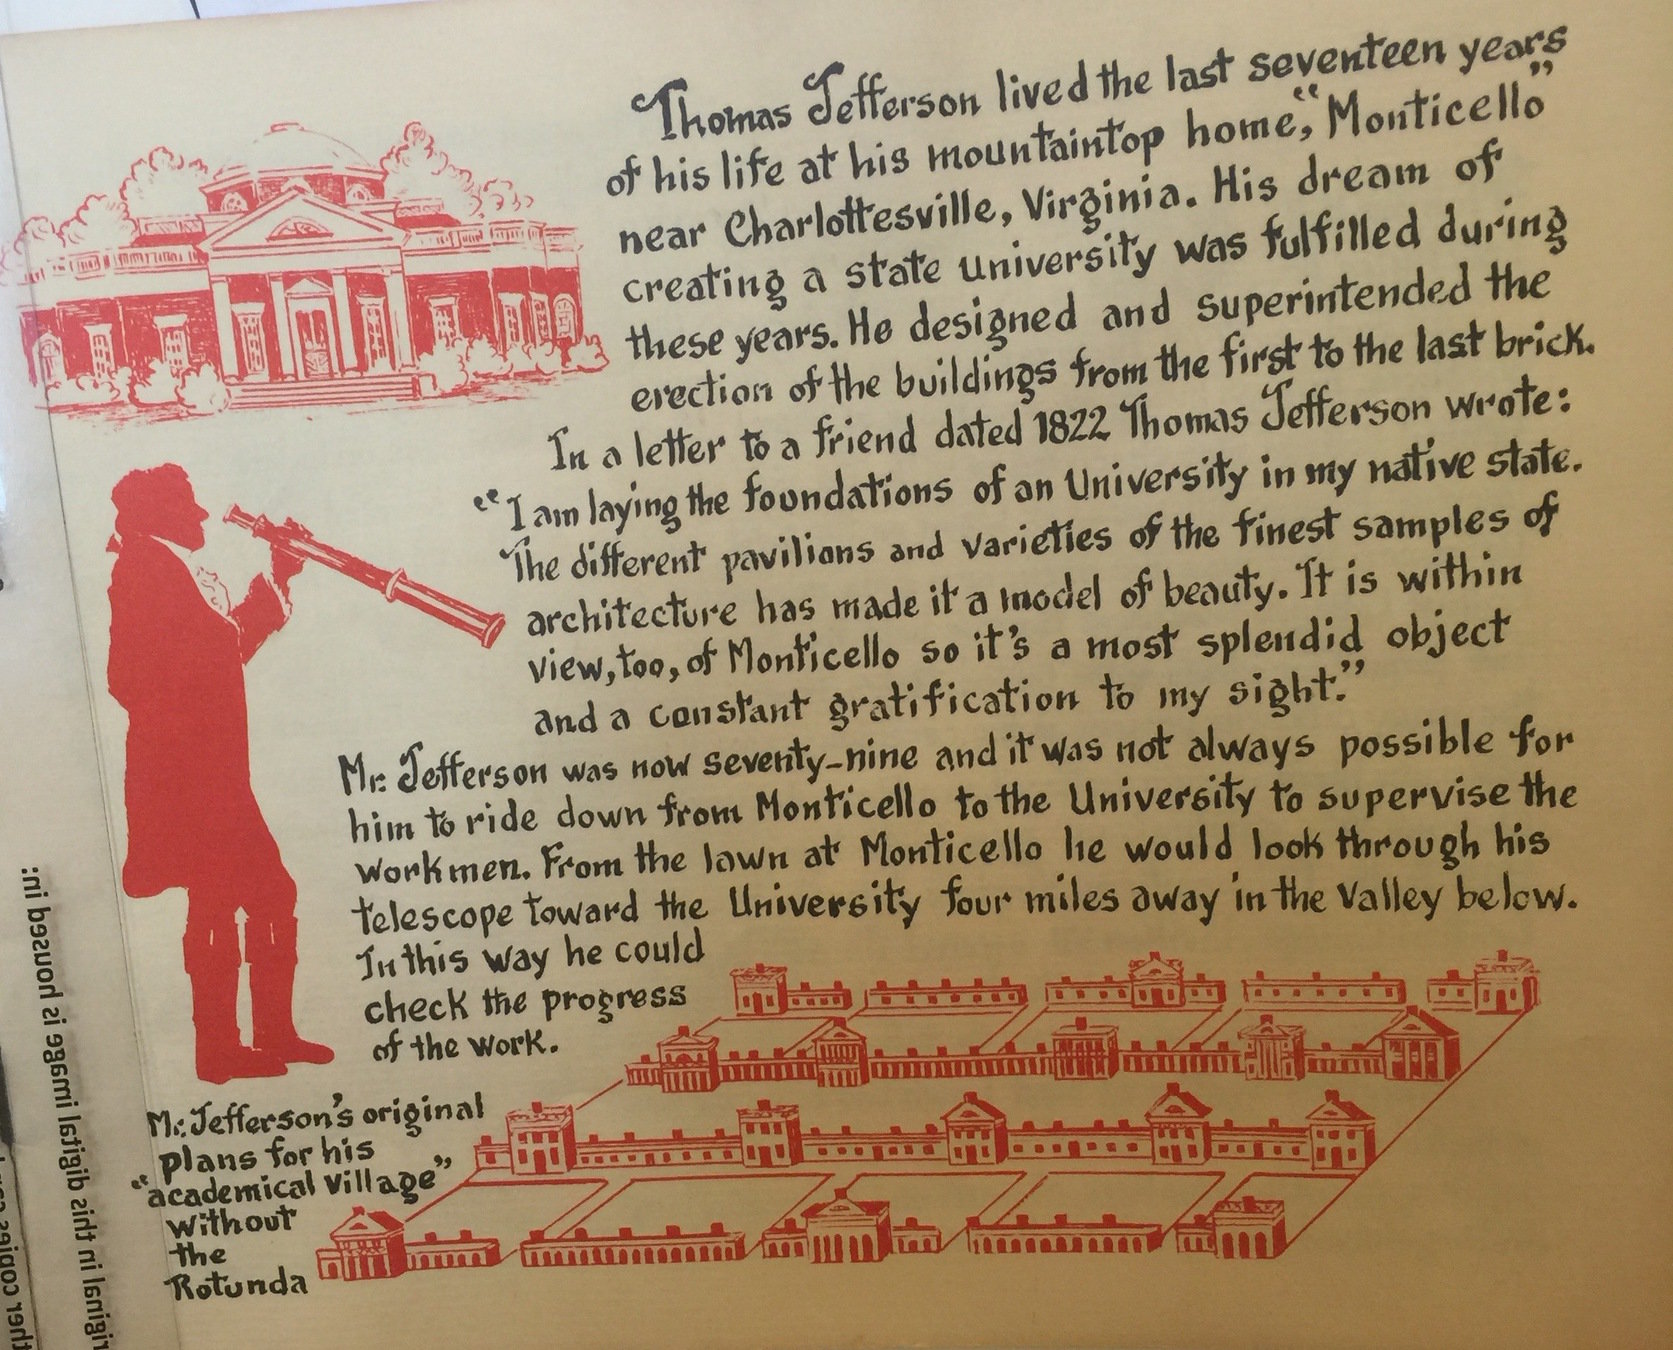 Thomas Jefferson lived the last seventeen years
of his life at his mountaintop home, "Monticello"
near Charlottesville, Virginia. His dream of
creating a state university was fulfilled during
these years. He designed and superintended the
erection of the buildings from the first to the last brick.
In a letter to a friend dated 1822 Thomas Jefferson wrote:
"I am laying the foundations of an University in my native state.
The different pavilions and varieties of the finest samples of
architecture has made it a model of beauty. It is within
view, too, of Monticello so it's a most splendid object
and a constant gratification to my sight."
Mr. Jefferson was now seventy-nine and it was not always possible for
him to ride down from Monticello to the University to supervise the
workmen. From the lawn at Monticello he would look through his
telescope toward the University four miles away in the valley below.
In this way he could
check the progress
of the work.
Mr. Jefferson's original
plans for his
"academical village"
without
the
Rotunda
riginal in this digital image is housed in:
ther copies